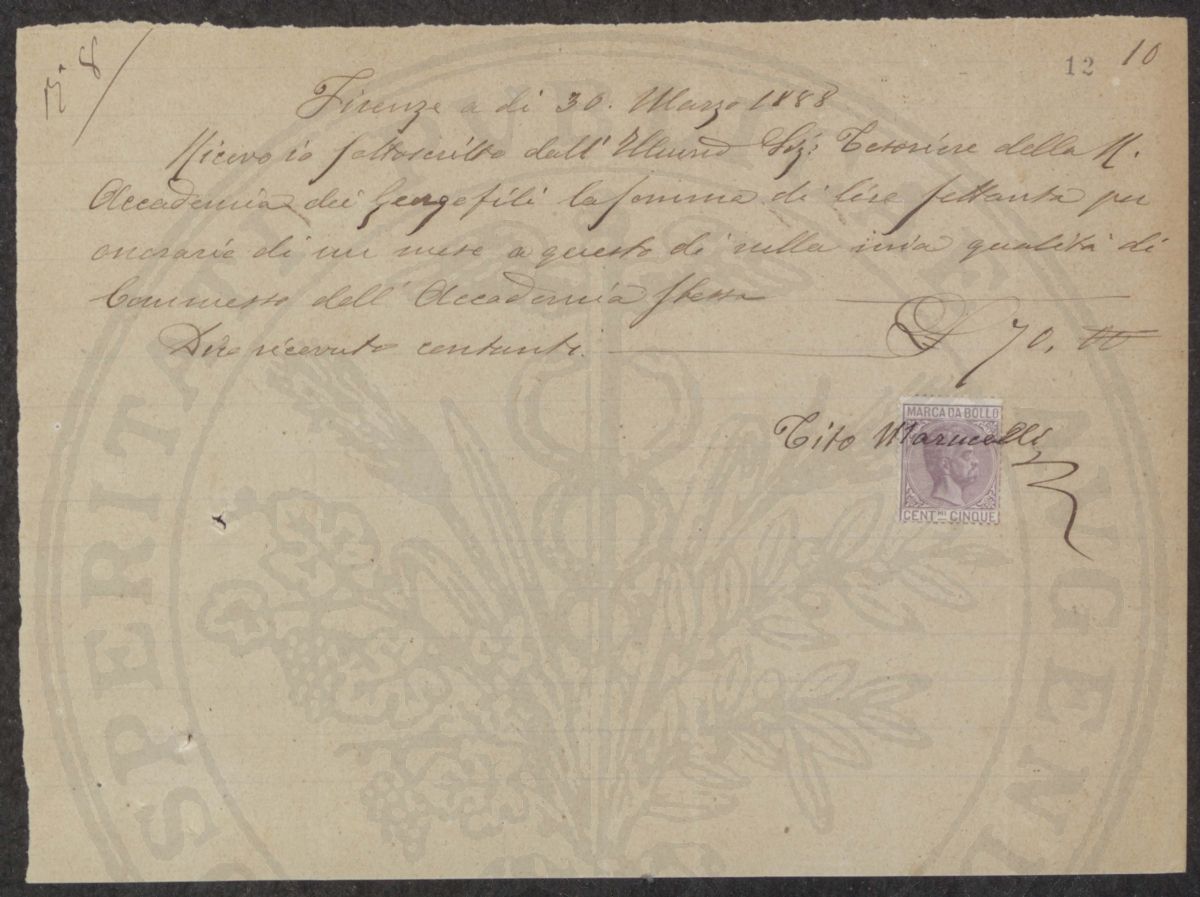 N. 8
12 10
Firenze a dì 30. Marzo 1888
Ricevo io sottoscritto dall' Illumo Sig: Tesoriere della R.
Accademia dei Georgofili la somma di lire settanta per
onorario di un mese a questo dì nella mia qualità di
Commesso dell' Accademia stessa
Dico ricevuto contanti. £ 70, 00
Tito Marucelli
MARCA DA BOLLO
CENT.MI CINQUE
PROSPERITATI PUBLICAE AUGENDAE